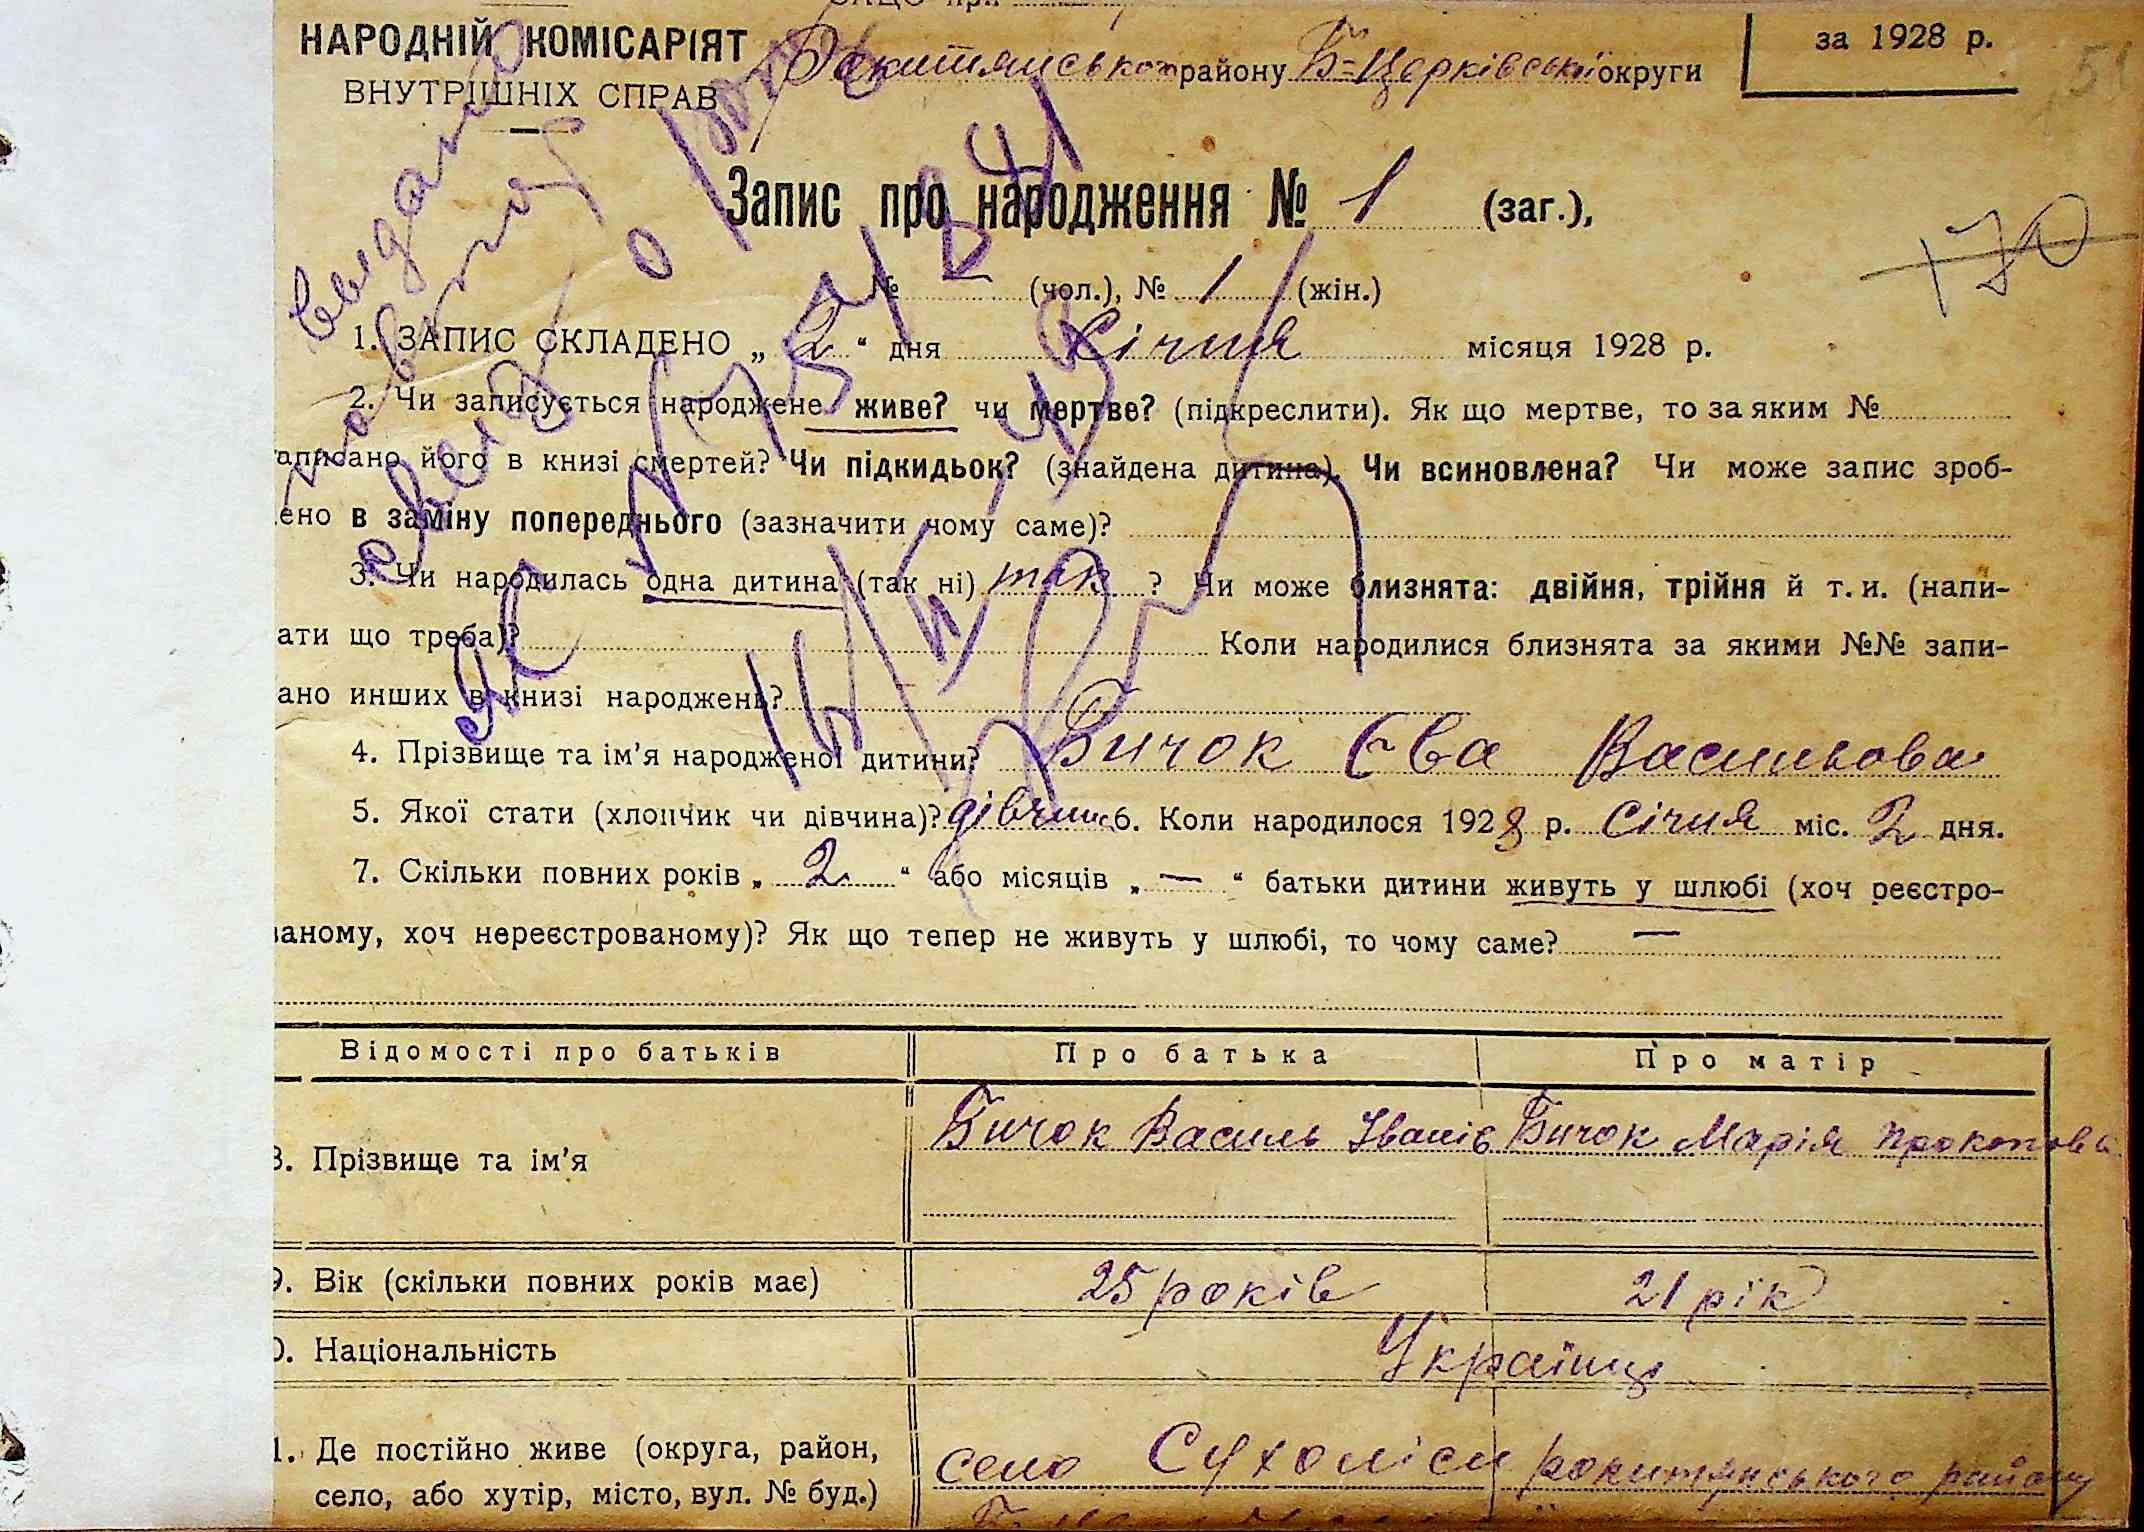 НАРОДНІЙ КОМІСАРІЯТ
ВНУТРІШНІХ СПРАВ
Рокитянського району Б-Церківської округи
за 1928 р.
Запис про народження № 1 (заг.),
170
№ (чол.), № 1 (жін.)
1. ЗАПИС СКЛАДЕНО „ 2 “ дня Січня місяця 1928 р.
2. Чи записується народжене живе? чи мертве? (підкреслити). Як що мертве, то за яким №
аписано його в книзі смертей? Чи підкидьок? (знайдена дитина). Чи всиновлена? Чи може запис зроб-
ено в заміну попереднього (зазначити чому саме)?
3. Чи народилась одна дитина (так ні) так ? Чи може близнята: двійня, трійня й т. и. (напи-
ати що треба)? Коли народилися близнята за якими №№ запи-
ано инших в книзі народжень?
4. Прізвище та ім’я народженої дитини? Бичок Єва Василькова
5. Якої стати (хлопчик чи дівчина)? дівчина 6. Коли народилося 1928 р. Січня міс. 2 дня.
7. Скільки повних років „ 2 “ або місяців „ — “ батьки дитини живуть у шлюбі (хоч реєстро-
аному, хоч нереєстрованому)? Як що тепер не живуть у шлюбі, то чому саме? —
Відомості про батьків Про батька Про матір
8. Прізвище та ім’я Бичок Василь Іванів Бичок Марія Прокопова
9. Вік (скільки повних років має) 25 років 21 рік
0. Національність Українці
1. Де постійно живе (округа, район, село Сухоліси рокитянського району
село, або хутір, місто, вул. № буд.)